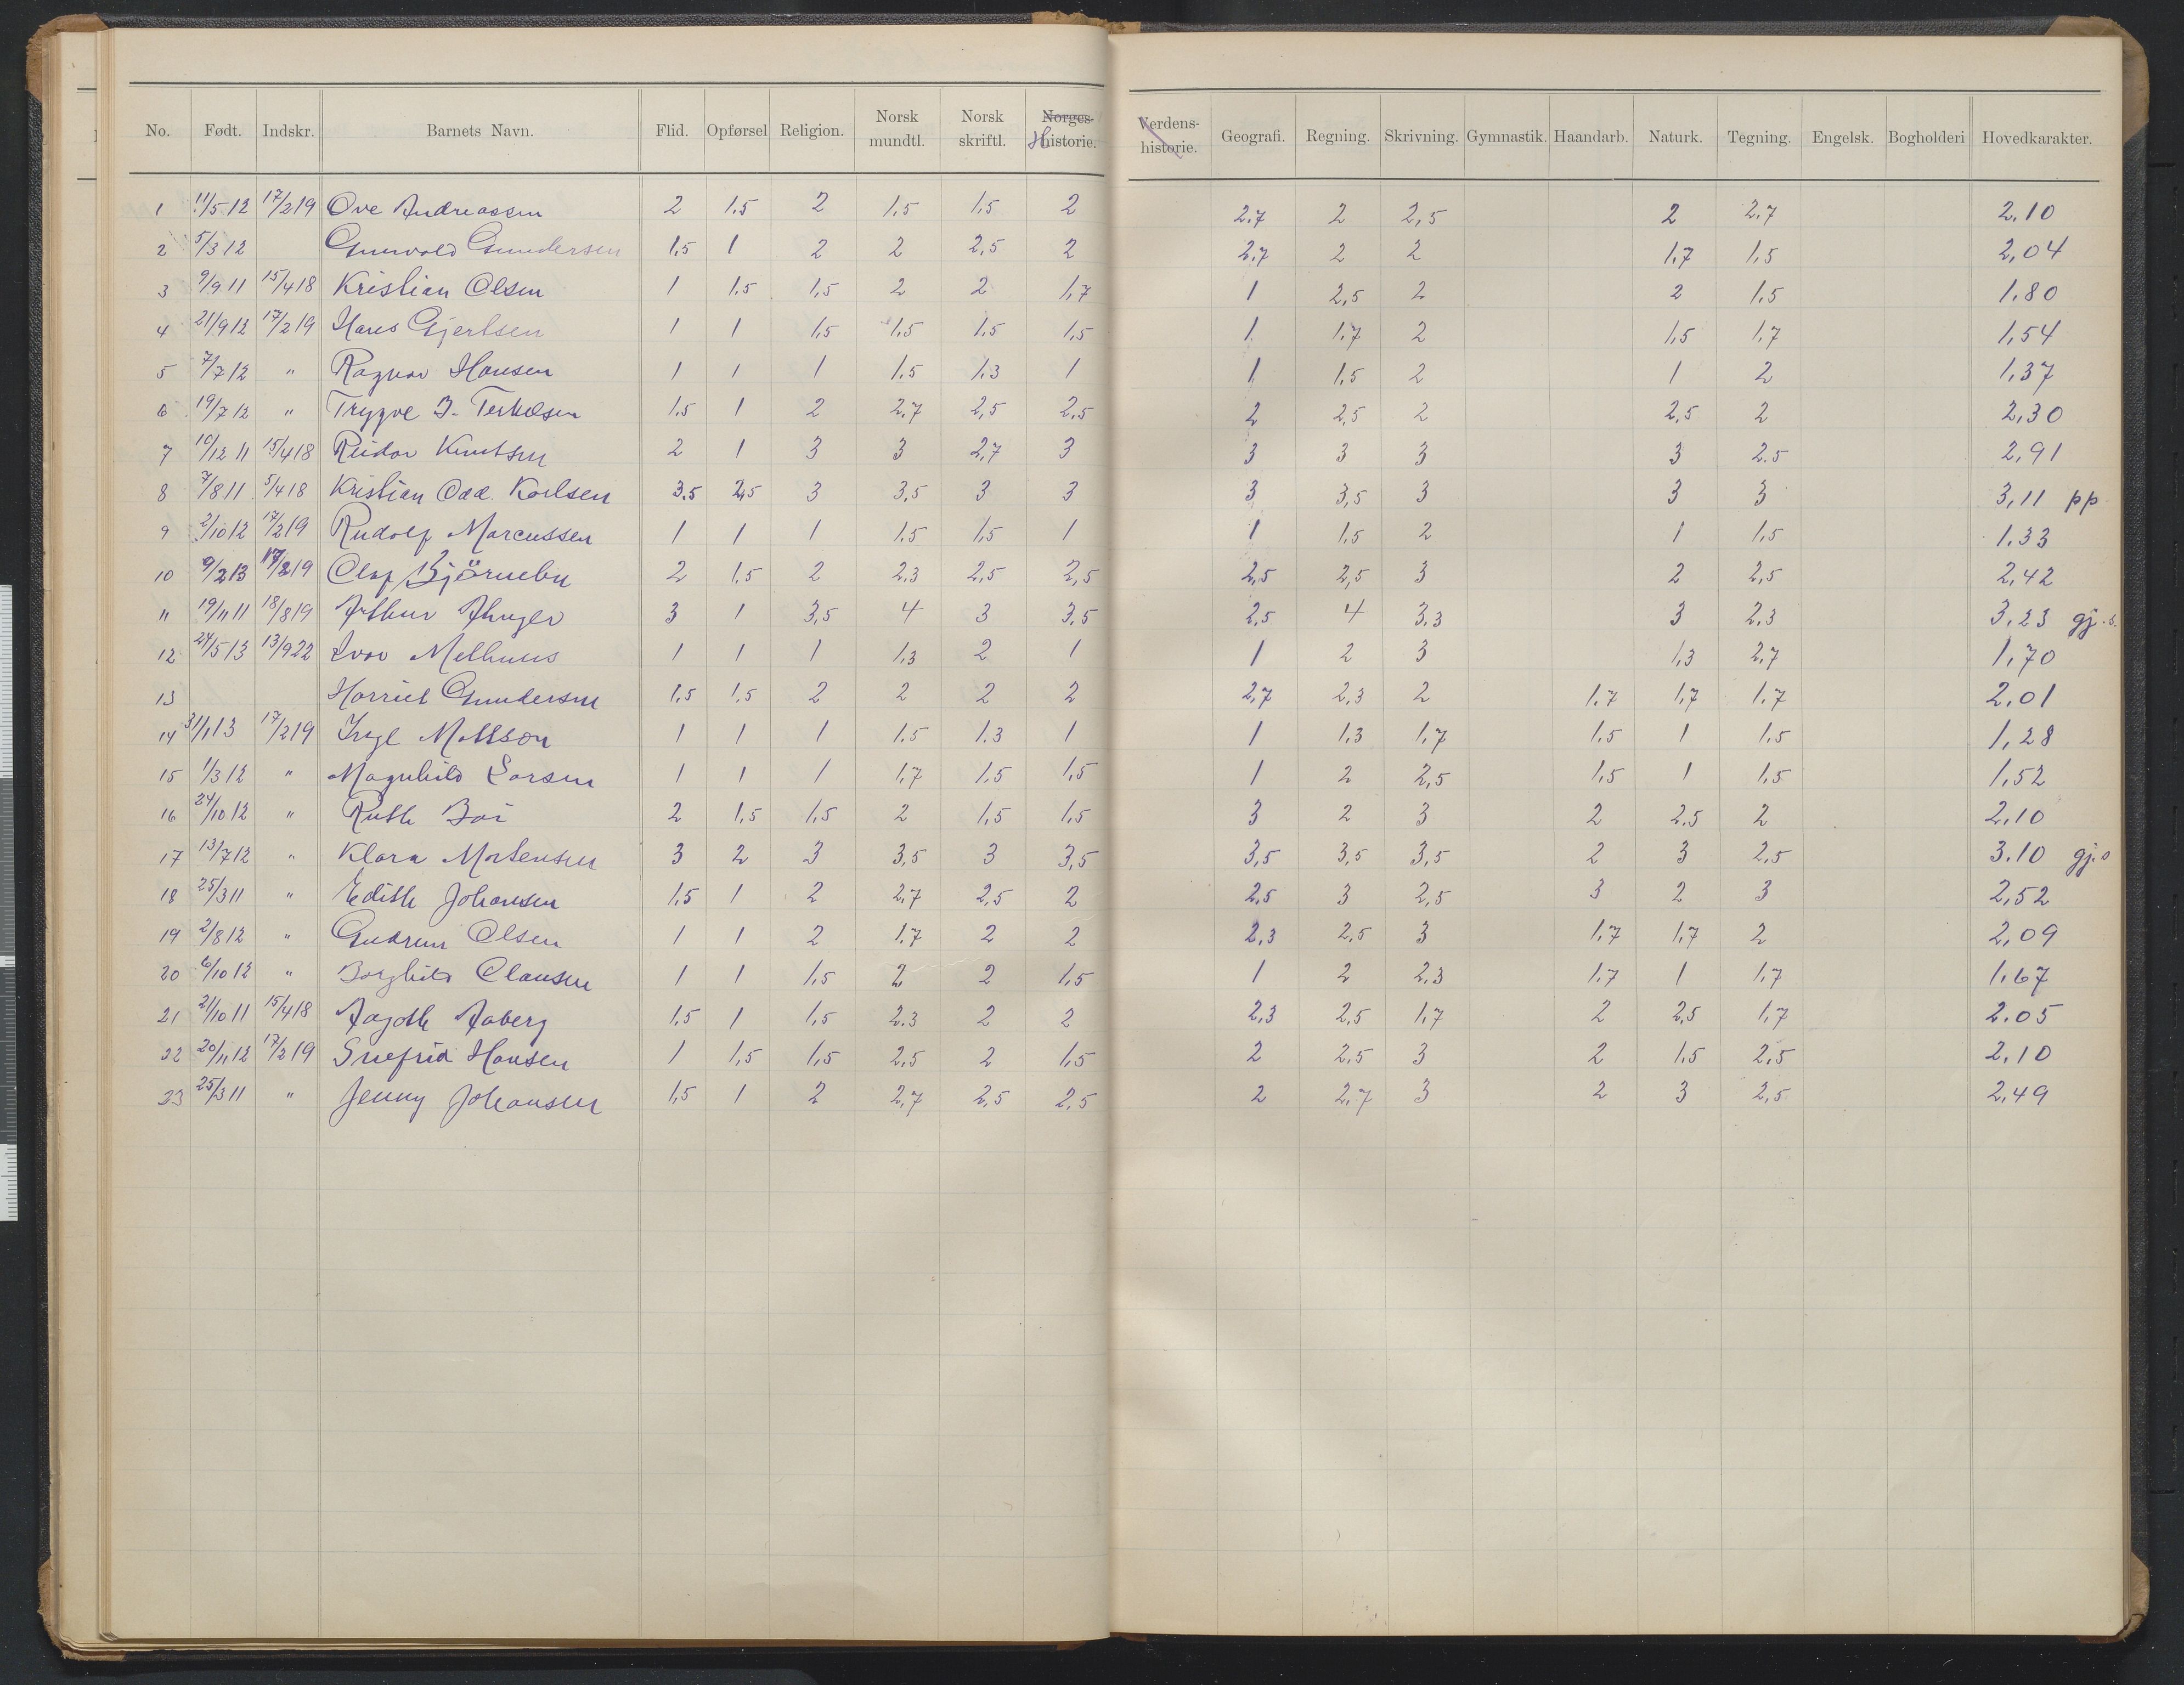 No. Født. Indskr. Barnets Navn. Flid. Opførsel Religion. Norsk mundtl. Norsk skriftl. Norges- Hhistorie. Verdens-historie. Geografi. Regning. Skrivning. Gymnastik. Haandarb. Naturk. Tegning. Engelsk. Bogholderi Hovedkarakter.
1 11/5 12 17/2 19 Ove Andreassen 2 1.5 2 1,5 1,5 2 2,7 2 2,5 2 2,7 2,10
2 5/3 12 Gunvold Gundersen 1,5 1 2 2 2,5 2 2,7 2 2 1,7 1,5 2,04
3 9/9 11 15/4 18 Kristian Olsen 1 1.5 1,5 2 2 1,7 1 2,5 2 2 1,5 1,80
4 21/9 12 17/2 19 Hans Gjertsen 1 1 1,5 1,5 1,5 1,5 1 1,7 2 1,5 1,7 1,54
5 7/7 12 " Ragnar Hansen 1 1 1 1.5 1.3 1 1 1,5 2 1 2 1,37
6 19/7 12 " Trygve B. Terkelsen 1.5 1 2 2,7 2,5 2,5 2 2,5 2 2,5 2 2,30
7 10/12 11 15/4 18 Reidar Knutsen 2 1 3 3 2,7 3 3 3 3 3 2.5 2,91
8 7/8 11 5/4 18 Kristian Odd. Karlsen 3.5 2,5 3 3,5 3 3 3 3,5 3 3 3 3,11 pp
9 2/10 12 17/2 19 Rudolf Marcussen 1 1 1 1.5 1,5 1 1 1.5 2 1 1,5 1.33
10 9/2 13 17/2 19 Olaf Björnebu 2 1,5 2 2,3 2,5 2,5 2,5 2,5 3 2 2,5 2,42
" 19/11 11 18/8 19 Arthur 3 1 3,5 4 3 3,5 2,5 4 3,3 3 2,3 3,23 gj.s.
12 24/5 13 13/9 22 Ivar Melhuus 1 1 1 1,3 2 1 1 2 3 1,3 2,7 1,70
13 Harriet Gundersen 1,5 1,5 2 2 2 2 2,7 2,3 2 1.7 1,7 1,7 2.01
14 31/1 13 17/2 19 Inge Mattson 1 1 1 1.5 1.3 1 1 1,3 1,7 1,5 1 1,5 1,28
15 1/3 12 " Magnhild Larsen 1 1 1 1,7 1.5 1,5 1 2 2,5 1,5 1 1,5 1,52
16 24/10 12 " Ruth Boi 2 1,5 1,5 2 1,5 1,5 3 2 3 2 2.5 2 2,10
17 13/7 12 " Klara Mortensen 3 2 3 3,5 3 3,5 3,5 3,5 3,5 2 3 2,5 3.10 gj.s
18 25/3 11 " Edith Johansen 1,5 1 2 2,7 2,5 2 2,5 3 2,5 3 2 3 2,52
19 2/8 12 " Gudrun Olsen 1 1 2 1.7 2 2 2,3 2,5 3 1,7 1,7 2 2,09
20 6/10 12 " Borghild Clausen 1 1 1,5 2 2 1,5 1 2 2,3 1,7 1 1,7 1,67
21 21/10 11 15/4 18 Aagoth Aaberg 1,5 1 1,5 2.3 2 2 2,3 2,5 1,7 2 2,5 1,7 2.05
22 20/11 12 17/2 19 Snefrid Hansen 1 1,5 1,5 2,5 2 1,5 2 2,5 3 2 1,5 2,5 2,10
23 25/3 11 " Jenny Johansen 1,5 1 2 2,7 2,5 2,5 2 2,7 3 2 3 2,5 2,49